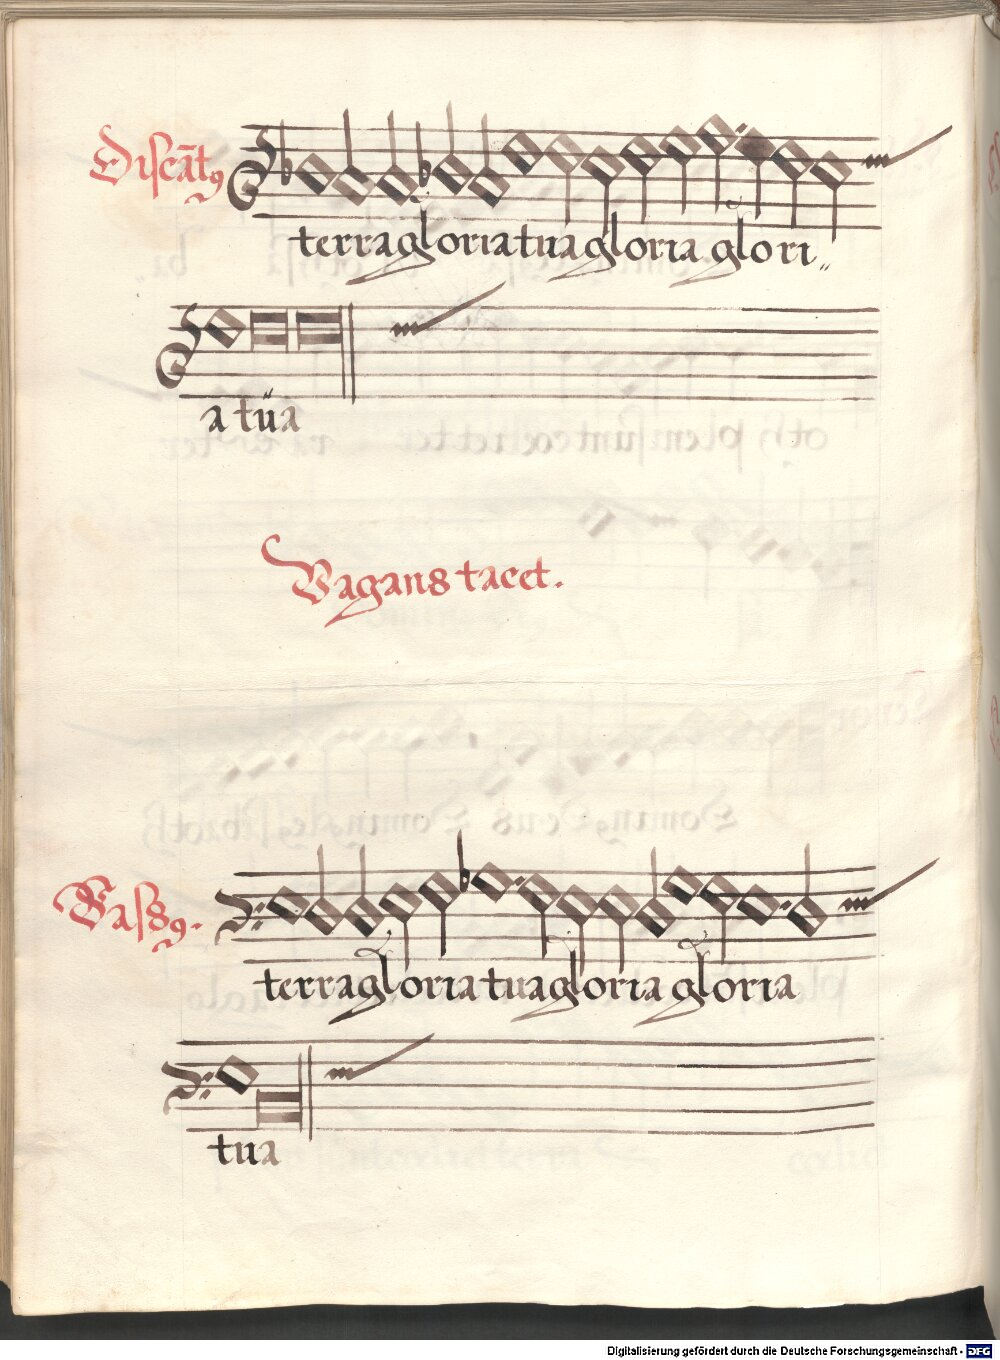 Discāt9
terra gloria tua gloria glori„
a tua
Vagans tacet.
Bass9.
terra gloria tua gloria gloria
tua
Digitalisierung gefördert durch die Deutsche Forschungsgemeinschaft - DFG